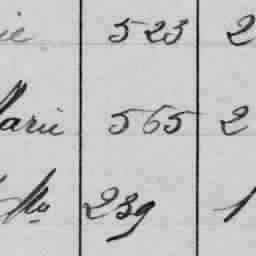 ie 523 2
Marie 565 2
239 1